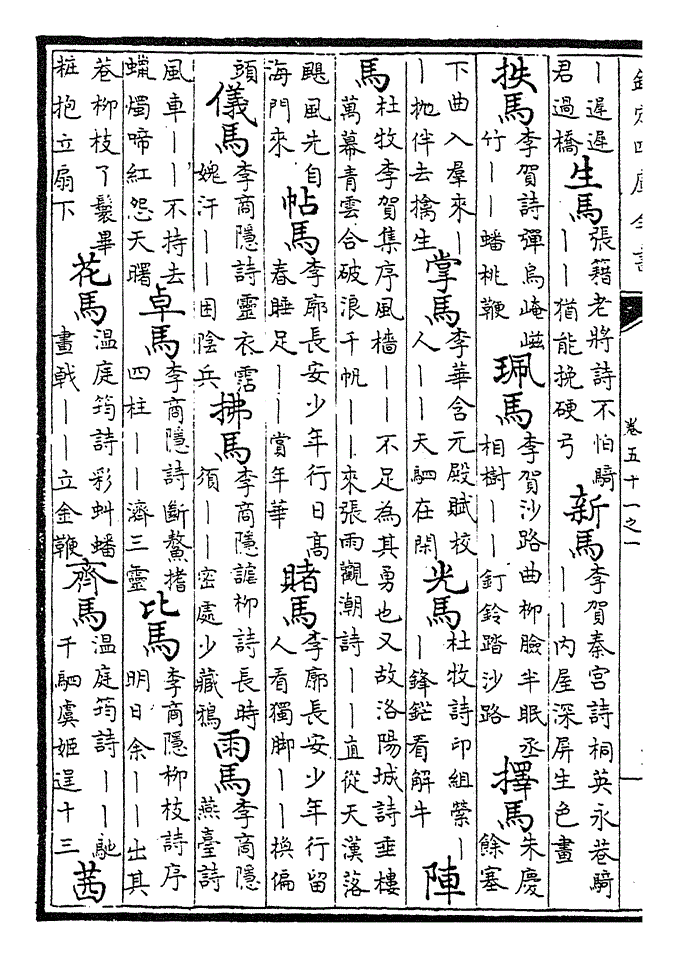 欽定四庫全書　卷五十一之一
｜遲遲君過橋 生馬 張籍老將詩不怕騎｜｜猶能挽硬弓 新馬 李賀秦宮詩桐英永巷騎｜｜內屋深屏生色畫
抶馬 李賀詩彈烏崦嵫竹｜｜蟠桃鞭 珮馬 李賀沙路曲柳臉半眠丞相樹｜｜釘鈴踏沙路 擇馬 朱慶餘塞
下曲入羣來｜｜拋伴去擒生 掌馬 李華含元殿賦校人｜｜天駟在閑 光馬 杜牧詩印組縈｜｜鋒鋩看解牛 陣
馬 杜牧李賀集序風檣｜｜不足為其勇也又故洛陽城詩垂樓萬幕青雲合破浪千帆｜｜來張雨觀潮詩｜｜直從天漢落
颶風先自海門來 帖馬 李廓長安少年行日高春睡足｜｜賞年華 賭馬 李廓長安少年行留人看獨脚｜｜換偏
頭 儀馬 李商隱詩靈衣霑媿汗｜｜困陰兵 拂馬 李商隱謔柳詩長時須｜｜密處少藏鴉 雨馬 李商隱燕臺詩
風車｜｜不持去蠟燭啼紅怨天曙 卓馬 李商隱詩斷鰲揩四柱｜｜濟三靈 比馬 李商隱柳枝詩序明日余｜｜出其
巷柳枝丫鬟畢粧抱立扇下 花馬 温庭筠詩彩虯蟠畫戟｜｜立金鞭 齊馬 温庭筠詩｜｜馳千駟虞姬逞十三 茜